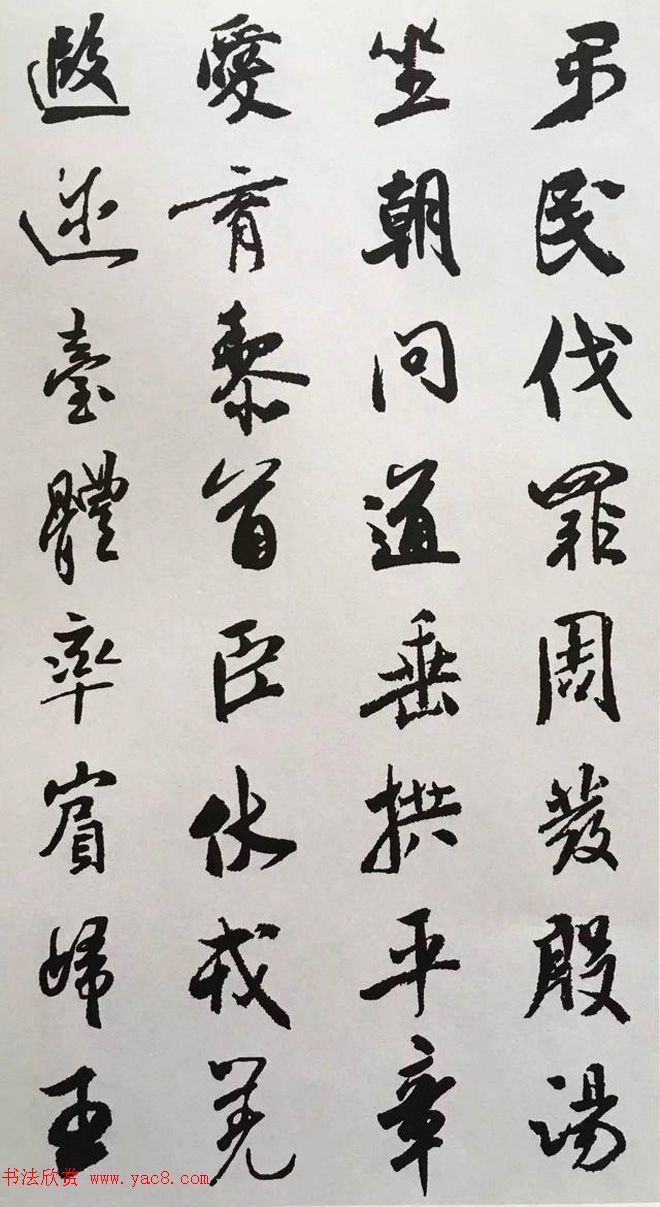 弔民伐罪周發殷湯
坐朝問道垂拱平章
愛育黎首臣伏戎羌
遐邇臺體率賓婦王
书法欣赏 www.yac8.com